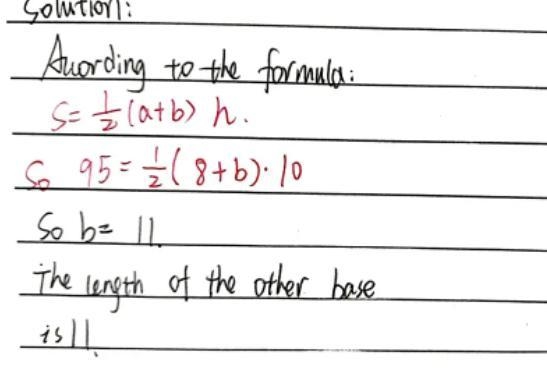 Solution:
Auording to the formula:
S = 1/2 (a+b) h.
So 95 = 1/2 ( 8+b)· 10
So b= 11.
The length of the other base
is 11.